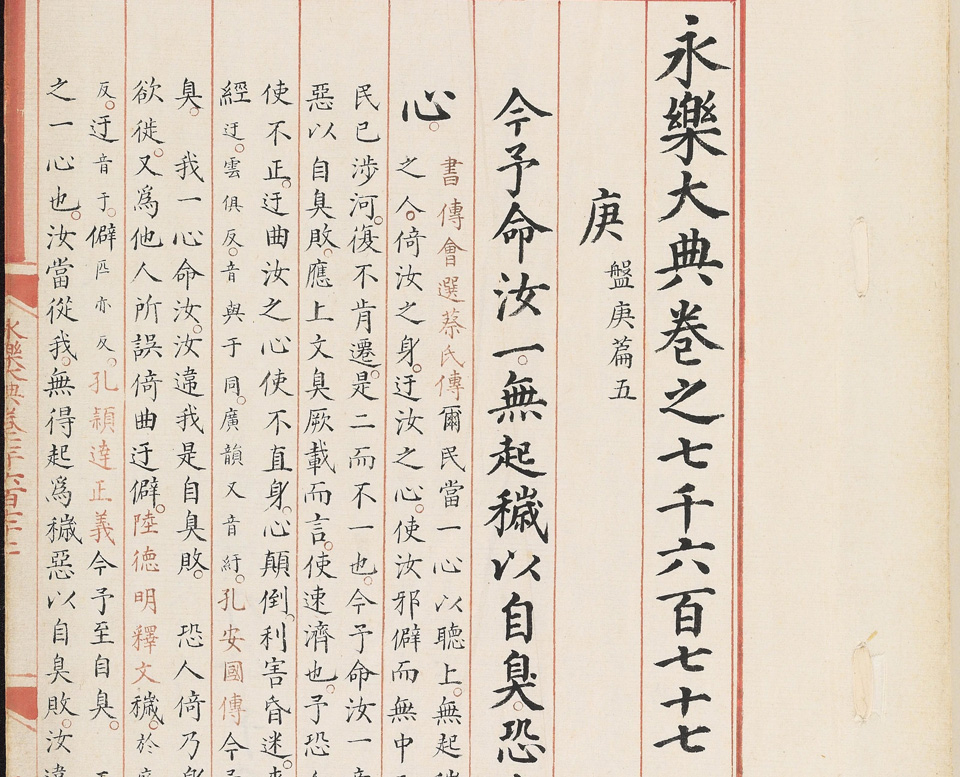 永樂大典卷之七千六百七十七
庚 盤庚篇五
今予命汝一。無起穢以自臭。恐
心。
書傳會選蔡氏傳爾民當一心以聽上。無起
之人。倚汝之身。迂汝之心。使汝邪僻而無中
民已涉河。復不肯遷。是二而不一也。今予命汝一
惡以自臭敗。應上文臭厥載而言。使速濟也。予恐
使不正。迂曲汝之心使不直。身。心顛倒。利害昏迷。
經迂。雲俱反。音與于同。廣韻又音紆。孔安國傳今
臭。 我一心命汝。汝違我是自臭敗。 恐人倚乃
欲徙。又爲他人所誤倚曲迂僻。陸德明釋文穢。於
反。迂音于。僻匹亦反。孔穎達正義今予至自臭。
之一心也。汝當從我。無得起爲穢惡以自臭敗。汝
永樂大典卷